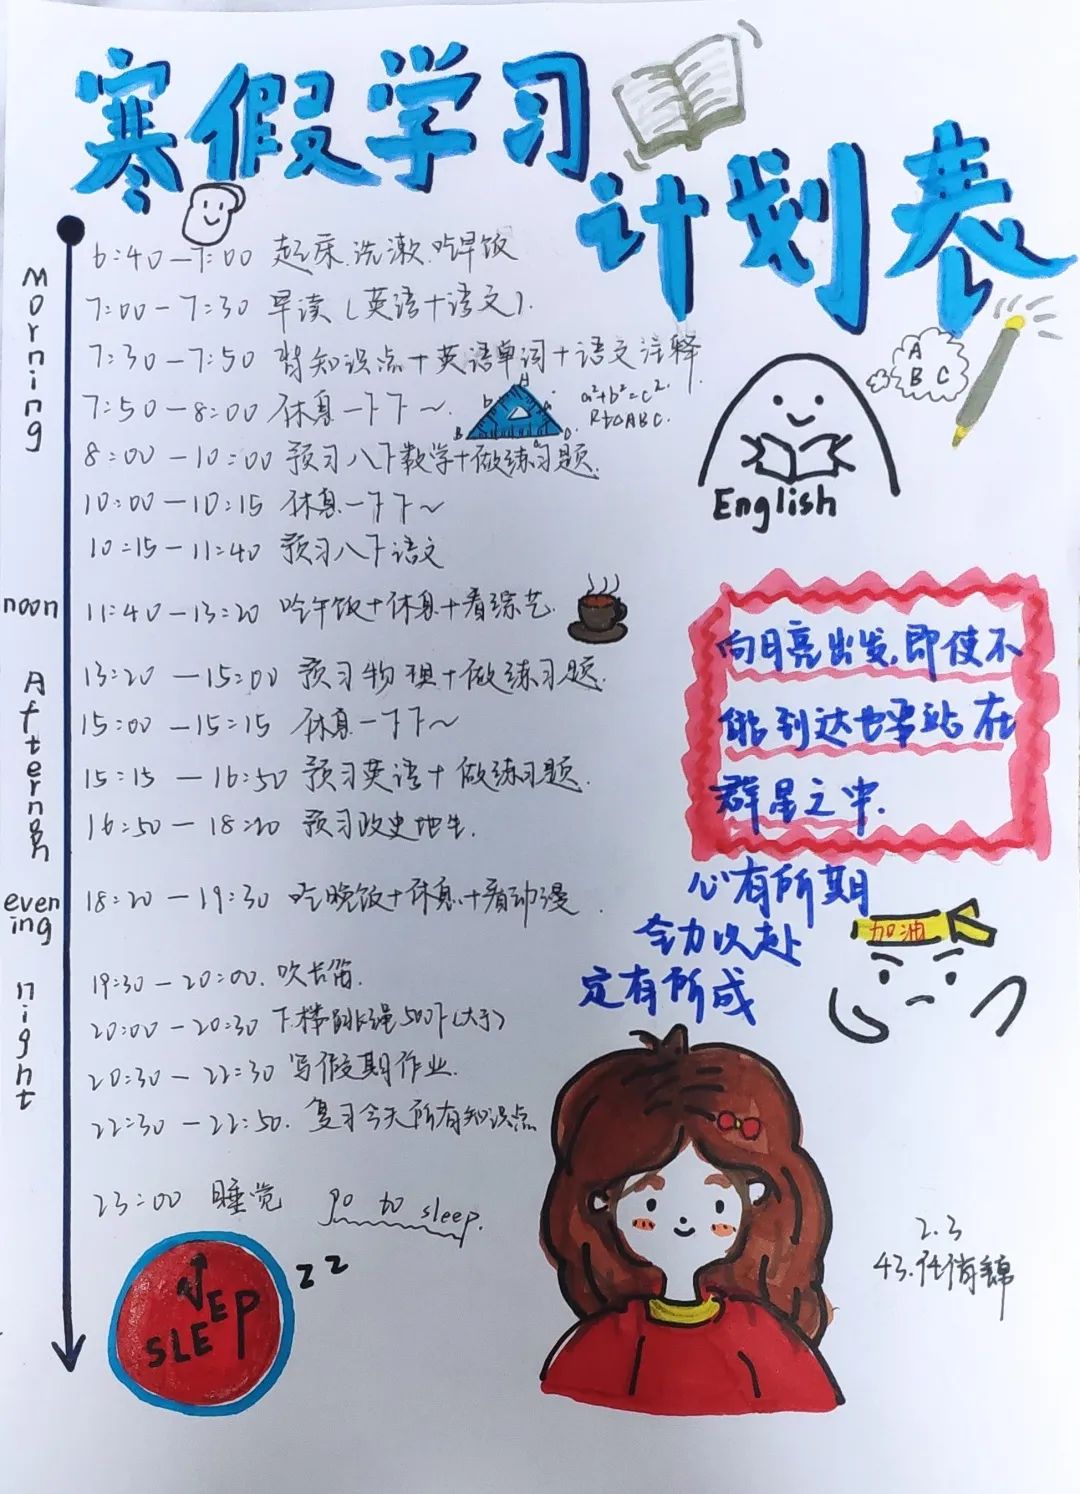 寒假学习
计划表
Morning
6:40—7:00 起床.洗漱.吃早饭
7:00—7:30 早读(英语+语文).
7:30—7:50 背知识点+英语单词+语文注释.
7:50—8:00 休息一下下~.
a²+b²=c².
Rt△ABC.
A
B C
8:00—10:00 预习八下数学+做练习题.
English
10:00—10:15 休息一下下~
10:15—11:40 预习八下语文
noon
11:40—13:20 吃午饭+休息+看综艺.
Afternoon
13:20—15:00 预习物理+做练习题.
15:00—15:15 休息一下下~
15:15—16:50 预习英语+做练习题.
16:50—18:20 预习政史地生.
向月亮出发,即使不
能到达也要站在
群星之中.
evening
18:20—19:30 吃晚饭+休息+看动漫.
心有所期
全力以赴
定有所成
加油
night
19:30—20:00.吹长笛.
20:00—20:30 下楼跳绳500下(大于)
20:30—22:30 写假期作业.
22:30—22:50.复习今天所有知识点
23:00 睡觉 go to sleep.
zz
SLEEP
2.3
43.任